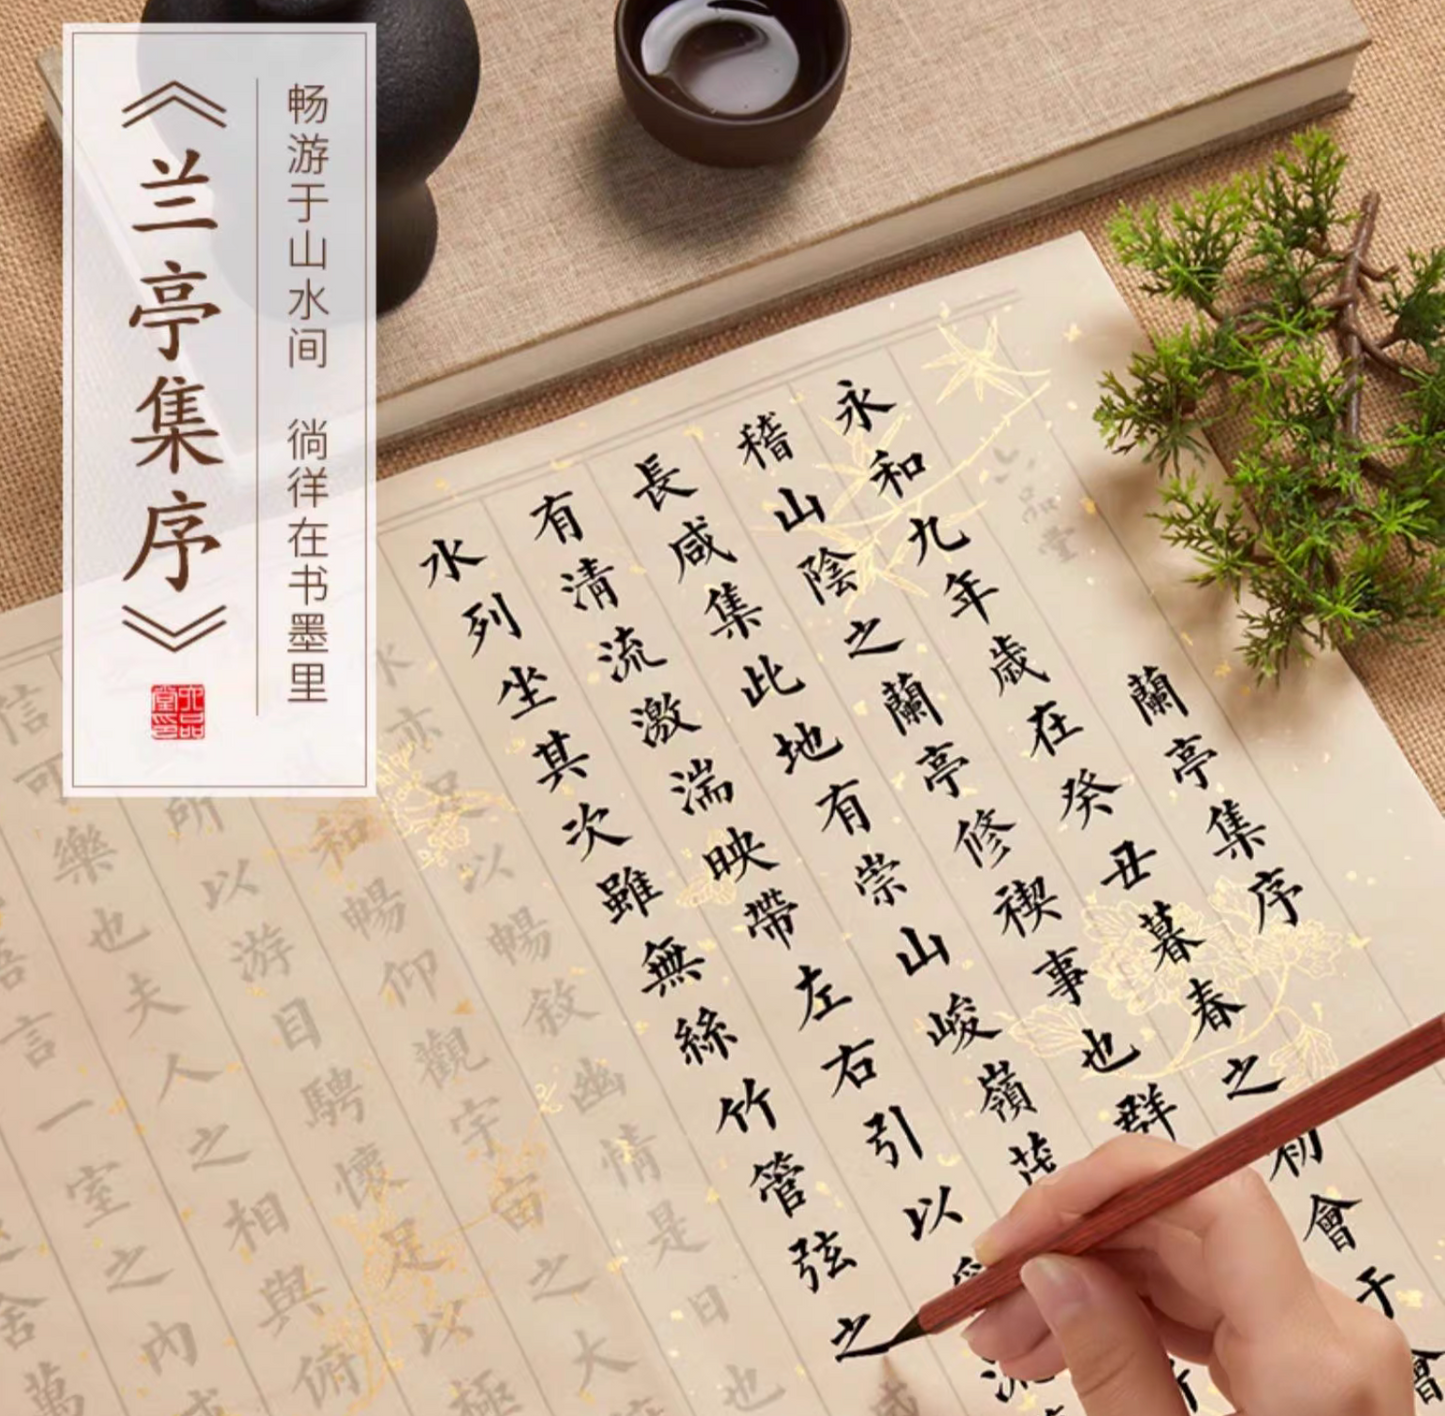 《兰亭集序》
畅游于山水间 徜徉在书墨里
六品堂印
六品堂
蘭亭集序
永和九年歲在癸丑暮春之初會于會
稽山陰之蘭亭修禊事也群
長咸集此地有崇山峻嶺茂
有清流激湍映帶左右引以流
水列坐其次雖無絲竹管弦之
亦足以暢敘幽情是日也
和暢仰觀宇宙之大
所以游目騁懷足以極
信可樂也夫人之相與俯
悟言一室之內或
舍萬